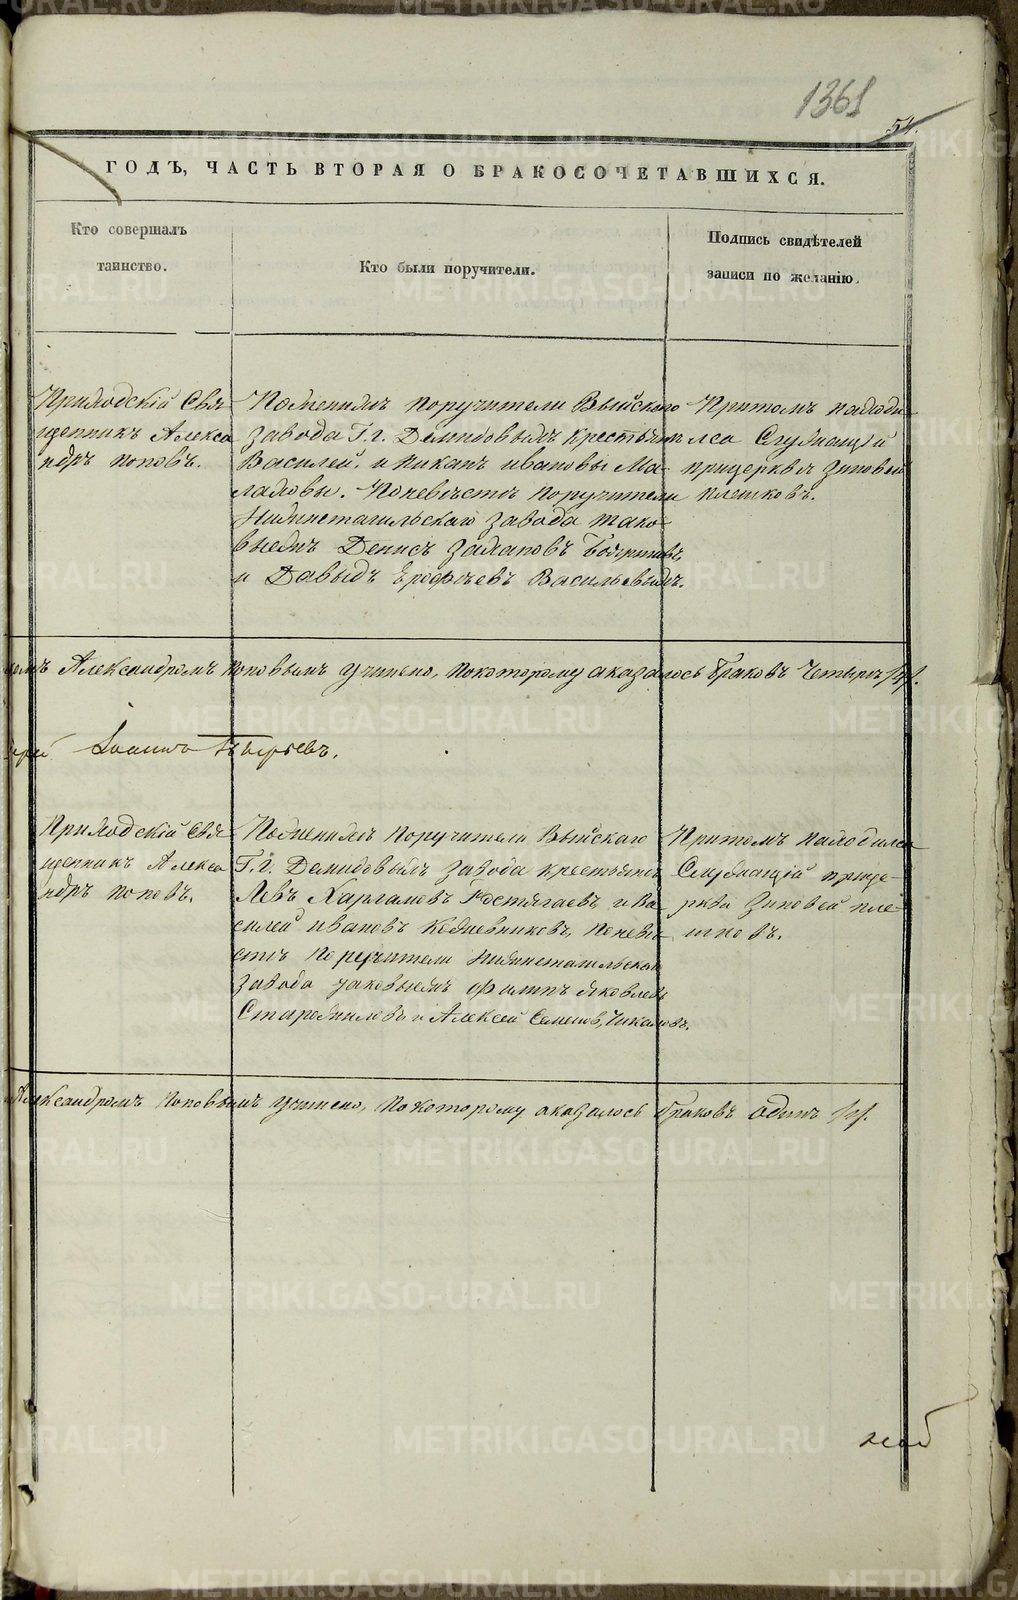 1361
54.
ГОДЪ, ЧАСТЬ ВТОРАЯ О БРАКОСОЧЕТАВШИХСЯ.
Кто совершалъ
таинство.
Кто были поручители.
Подпись свидѣтелей
записи по желанію.
Приходскій Свя
щенникъ Алекса
ндръ поповъ.
Поженихѣ поручители Выйскаго
завода Г.г. Демидовыхъ крестьяне
Василей, и никанъ ивановы Ма-
лаховы. Поневѣстѣ поручители
Нижнетагильскаго завода тако-
выежъ Денисъ
и Давыдъ Ерофѣевъ Васильевыхъ.
Притомъ находи
лса Служащій
прицерквѣ Зиновей
плешковъ.
Александромъ поповымъ учинено, покоторому аказалось браковъ Четыре /4/.
Іоаннъ
Приходскій Свя
щенникъ Алекса
ндръ поповъ.
Поженихѣ поручители Выйскаго
Г.г. Демидовыхъ завода крестьяне
Левъ Костягаевъ и Ва
силей ивановъ Кожевниковъ, поневѣ
стѣ поручители Нижнетагильскаго
завода таковыежъ Филипъ Яковлевъ
и Алексей Семенов, Чикаловъ.
Притомъ находился
Служащій прице-
рквѣ Зиновей пле-
шковъ.
Александромъ поповымъ учинено, покоторому оказалось браковъ одинъ /1/.
METRIKI.GASO-URAL.RU